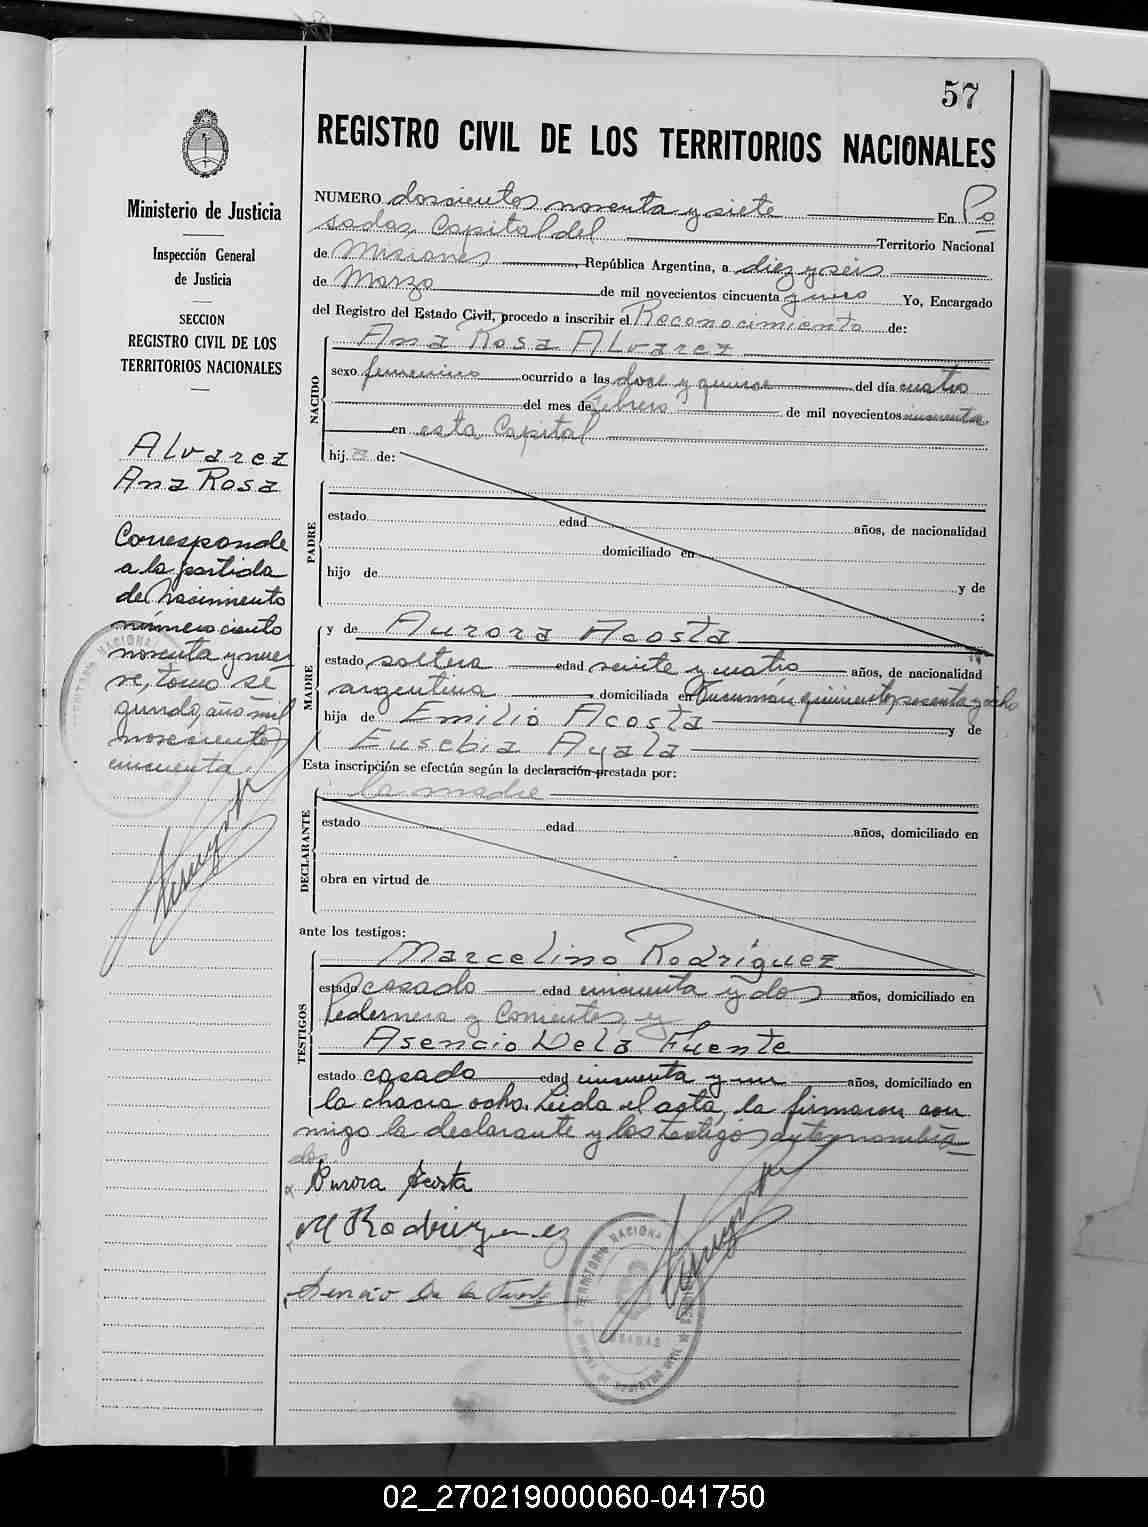 57
REGISTRO CIVIL DE LOS TERRITORIOS NACIONALES
Ministerio de Justicia
Inspección General
de Justicia
SECCION
REGISTRO CIVIL DE LOS
TERRITORIOS NACIONALES
Alvarez
Ana Rosa
Corresponde
a la partida
de Nacimiento
número ciento
noventa y nue
ve, tomo se
gundo, año mil
novecientos
cincuenta.
NUMERO doscientos noventa y siete En Po
sadas, Capital del Territorio Nacional
de Misiones, República Argentina, a diez y seis
de Marzo de mil novecientos cincuenta y uno Yo, Encargado
del Registro del Estado Civil, procedo a inscribir el Reconocimiento de:
NACIDO
Ana Rosa Alvarez
sexo femenino ocurrido a las doce y quince del día cuatro
del mes de Febrero de mil novecientos cincuenta
en esta Capital
hij a de:
PADRE
estado edad años, de nacionalidad
domiciliado en
hijo de y de
:
MADRE
y de Aurora Acosta
estado soltera edad veinte y cuatro años, de nacionalidad
argentina, domiciliada en Tucumán quinientos sesenta y ocho
hija de Emilio Acosta y de
Eusebia Ayala
Esta inscripción se efectúa según la declaración prestada por:
DECLARANTE
la madre
estado edad años, domiciliado en
obra en virtud de
ante los testigos:
TESTIGOS
Marcelino Rodríguez
estado casado edad cincuenta y dos años, domiciliado en
Pedernera y Corrientes, y
Asencio De la Fuente
estado casado edad cincuenta y un años, domiciliado en
la chacra ocho. Leída el acta, la firmaron con
migo la declarante y los testigos antenombra
dos
Aurora Acosta
M Rodriguez
Asencio De la Fuente
02_270219000060-041750